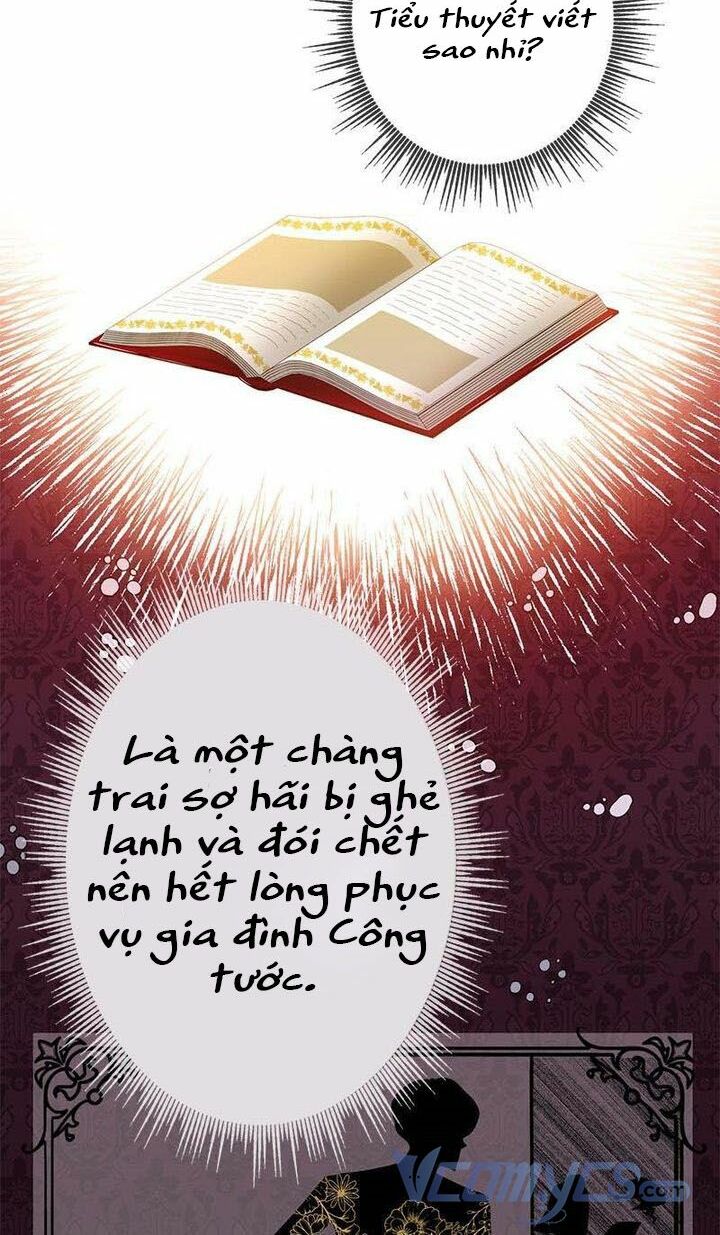 Tiểu thuyết viết
sao nhỉ?
Là một chàng
trai sợ hãi bị ghẻ
lạnh và đói chết
nên hết lòng phục
vụ gia đình Công
tước.
VCOMYCS.COM